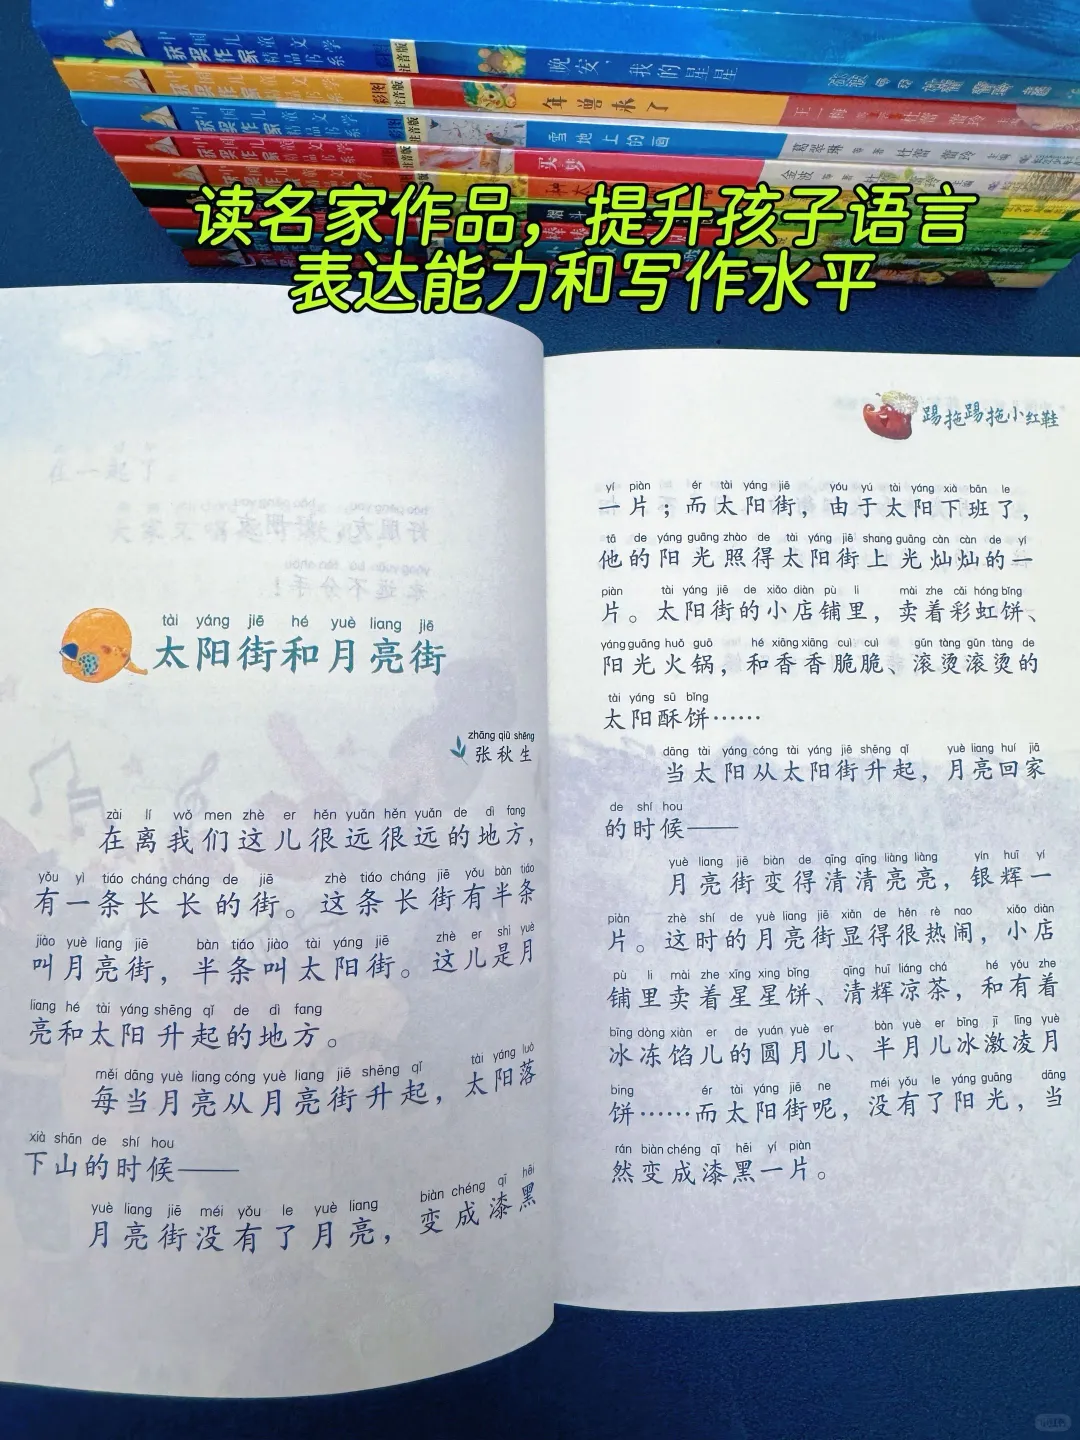 中国儿童文学
获奖作家精品书系
注音版
晚安，我的星星
中国儿童文学
获奖作家精品书系
彩图
注音版
年兽来了
王一梅
中国儿童文学
获奖作家精品书系
彩图
注音版
雪地上的画
葛翠琳 等 著
中国儿童文学
获奖作家精品书系
买梦
金波 等 著
读名家作品，提升孩子语言
表达能力和写作水平
tài yáng jiē hé yuè liang jiē
太阳街和月亮街
zhāng qiū shēng
张秋生
zài lí wǒ men zhè er hěn yuǎn hěn yuǎn de dì fang
在离我们这儿很远很远的地方，
yǒu yì tiáo cháng cháng de jiē zhè tiáo cháng jiē yǒu bàn tiáo
有一条长长的街。这条长街有半条
jiào yuè liang jiē bàn tiáo jiào tài yáng jiē zhè er shì yuè
叫月亮街，半条叫太阳街。这儿是月
liang hé tài yáng shēng qǐ de dì fang
亮和太阳升起的地方。
měi dāng yuè liang cóng yuè liang jiē shēng qǐ tài yáng luò
每当月亮从月亮街升起，太阳落
xià shān de shí hou
下山的时候——
yuè liang jiē méi yǒu le yuè liang biàn chéng qī hēi
月亮街没有了月亮，变成漆黑
踢拖踢拖小红鞋
yí piàn ér tài yáng jiē yóu yú tài yáng xià bān le
一片；而太阳街，由于太阳下班了，
tā de yáng guāng zhào de tài yáng jiē shang guāng càn càn de yí
他的阳光照得太阳街上光灿灿的一
piàn tài yáng jiē de xiǎo diàn pù li mài zhe cǎi hóng bǐng
片。太阳街的小店铺里，卖着彩虹饼、
yáng guāng huǒ guō hé xiāng xiāng cuì cuì gǔn tàng gǔn tàng de
阳光火锅，和香香脆脆、滚烫滚烫的
tài yáng sū bǐng
太阳酥饼……
dāng tài yáng cóng tài yáng jiē shēng qǐ yuè liang huí jiā
当太阳从太阳街升起，月亮回家
de shí hou
的时候——
yuè liang jiē biàn de qīng qīng liàng liàng yín huī yí
月亮街变得清清亮亮，银辉一
piàn zhè shí de yuè liang jiē xiǎn de hěn rè nao xiǎo diàn
片。这时的月亮街显得很热闹，小店
pù li mài zhe xīng xing bǐng qīng huī liáng chá hé yǒu zhe
铺里卖着星星饼、清辉凉茶，和有着
bīng dòng xiàn er de yuán yuè er bàn yuè er bīng jī líng yuè
冰冻馅儿的圆月儿、半月儿冰激凌月
bing ér tài yáng jiē ne méi yǒu le yáng guāng dāng
饼……而太阳街呢，没有了阳光，当
rán biàn chéng qī hēi yí piàn
然变成漆黑一片。